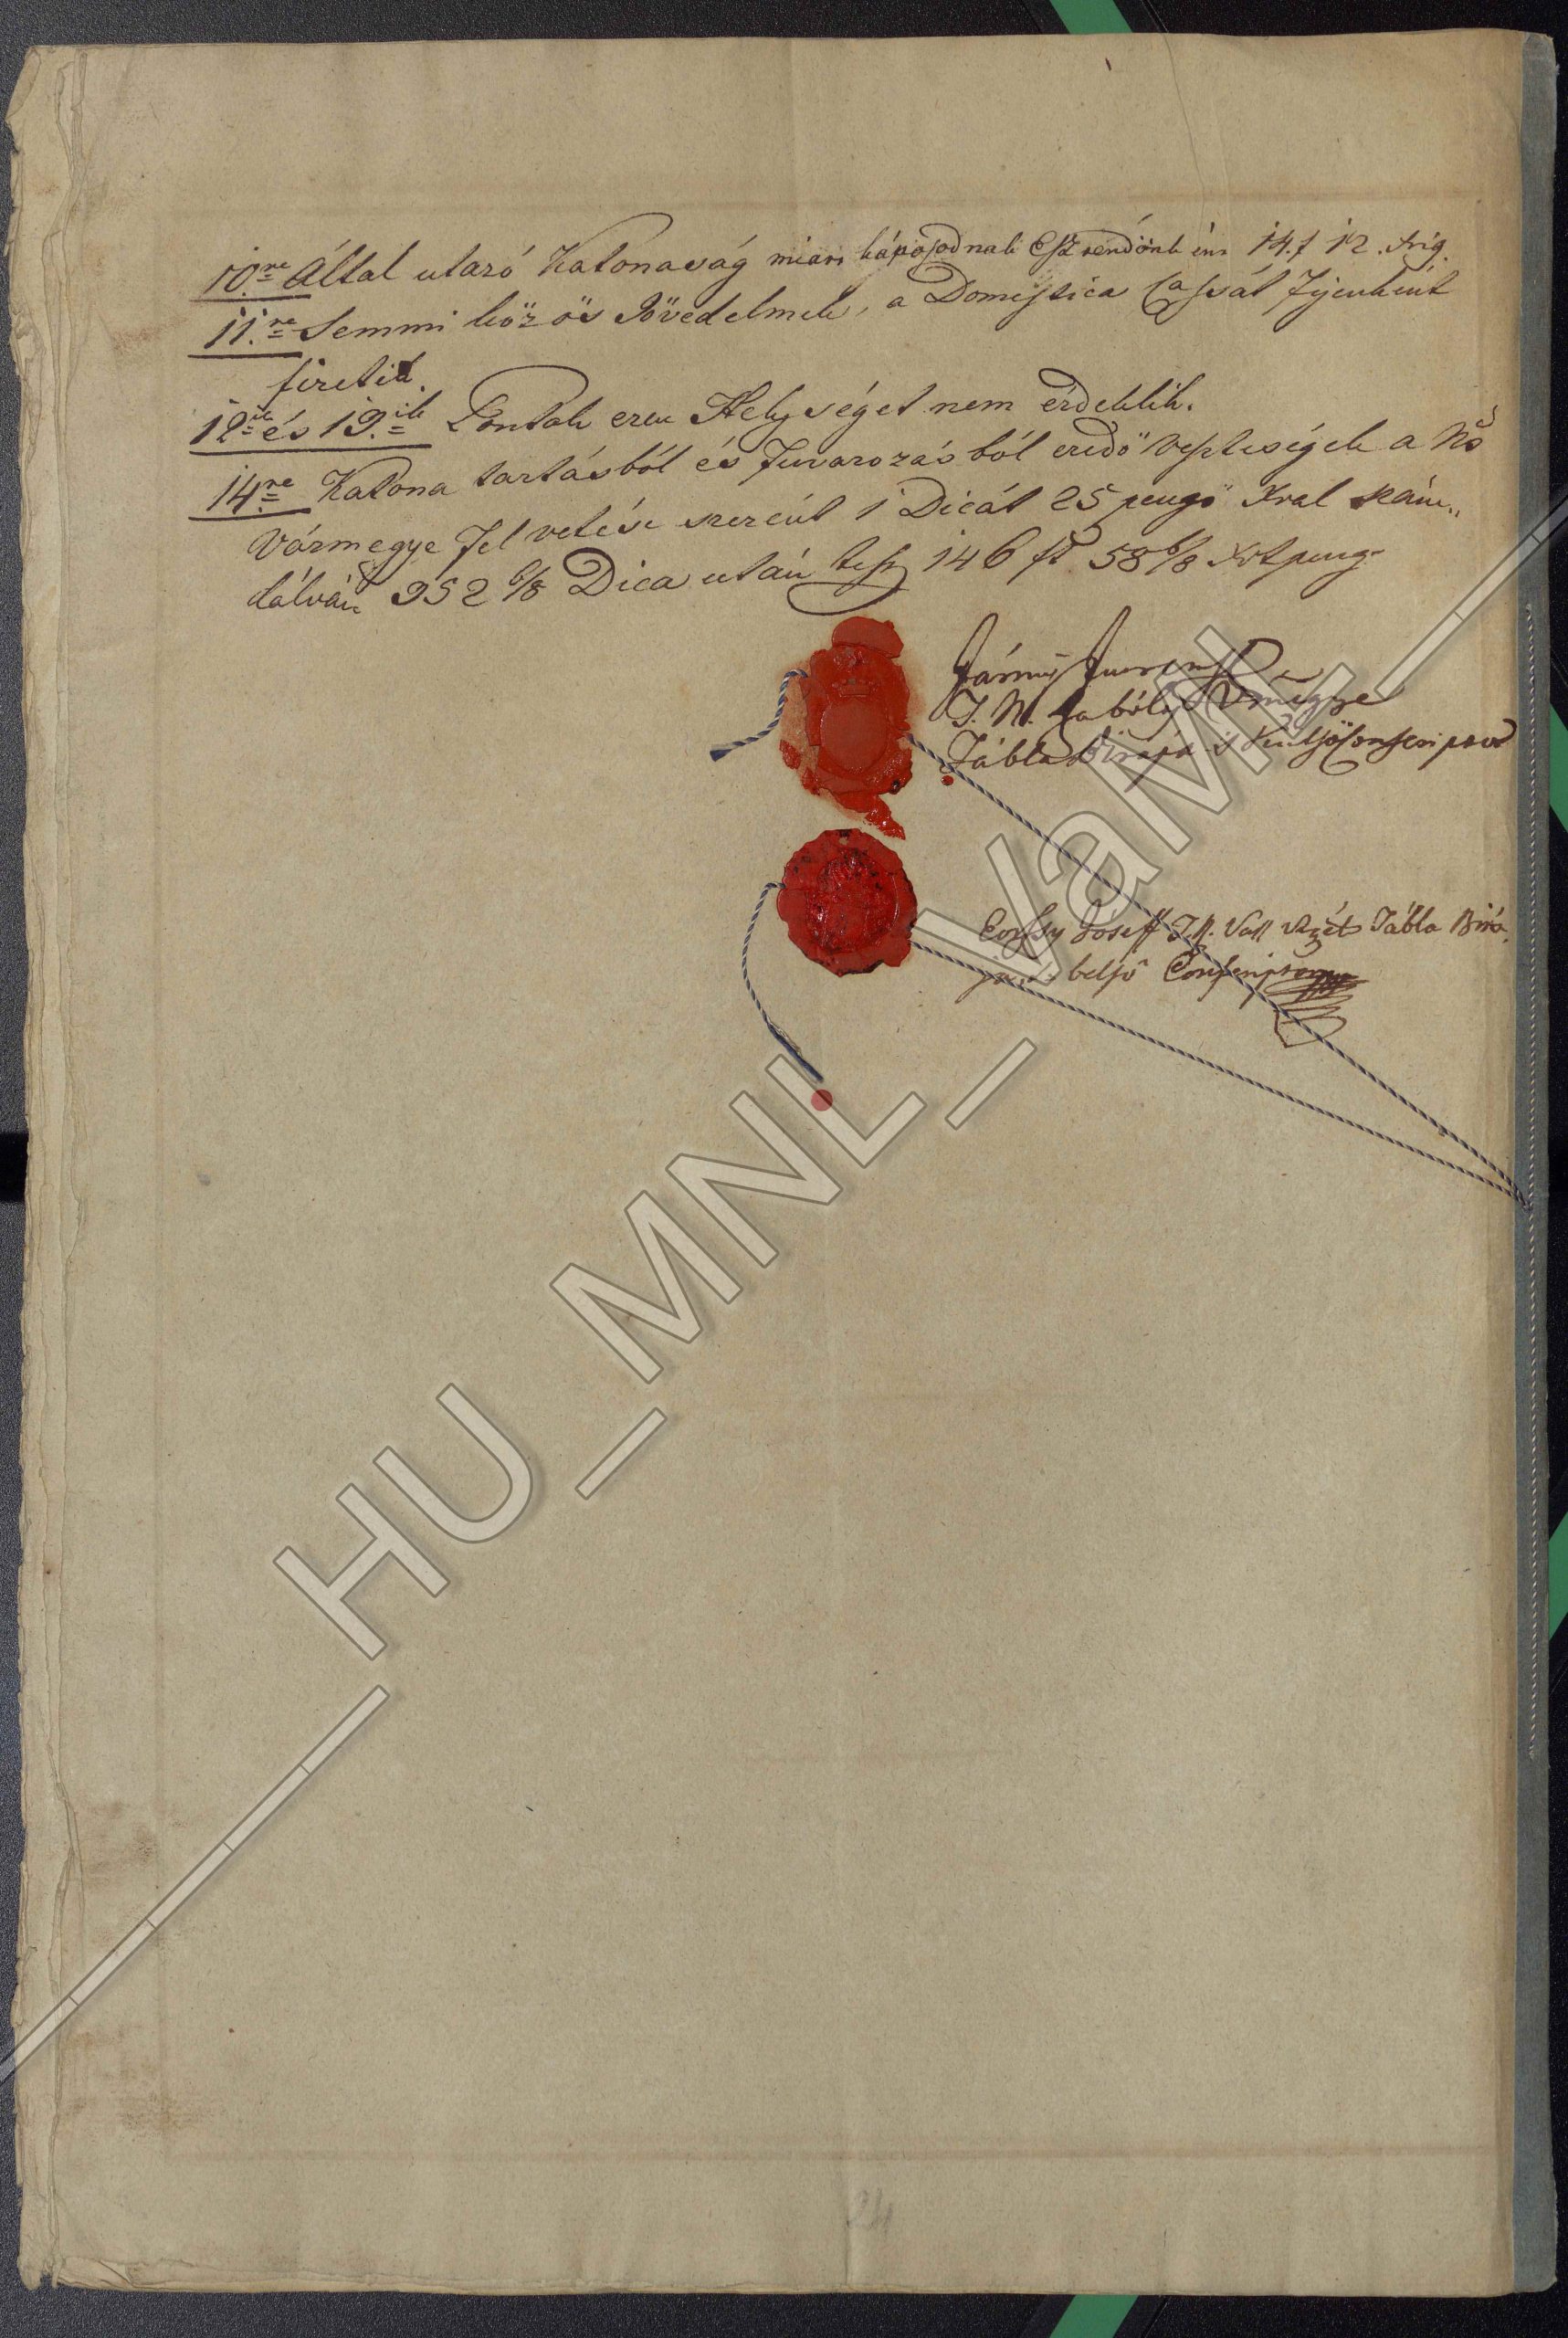 10.re Által utazó Katonaság miatt károsodnak Esztendőnként 14.f 12. xrig.
11.re Semmi közös Jövedelmek, a Domestica Cassát Fejenként
fizetik.
12ik és 13.ik Pontok ezen Helységet nem érdeklik.
14.re Katona tartásból és Fuvarozásból eredő veszteségek a Ns
Vármegye fel vetése szerént 1 Dicát 25 pengő Xral szám„
lálván 352 6/8 Dica után tesz 146 ft 58 6/8 Xrt peng.
Jármÿ
T. N. Szabólts Vmegye
Tábla Birája 's Külső Conscriptor
Joseff T. N. Vass Tábla Birá„
belső Conscriptor
24
HU_MNL_VaML_